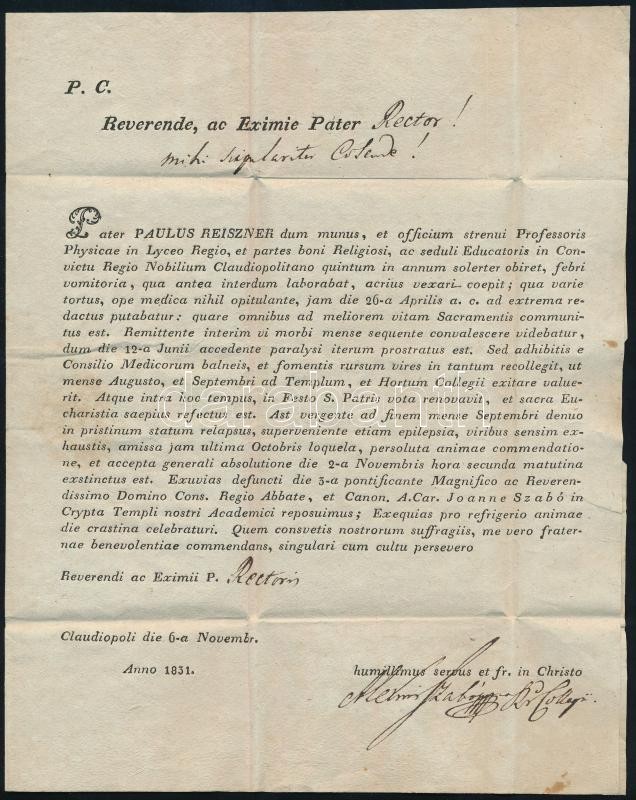 P. C.
Reverende, ac Eximie Pater Rector!
mihi singulariter Colende!
Pater PAULUS REISZNER dum munus, et officium strenui Professoris
Physicae in Lyceo Regio, et partes boni Religiosi, ac seduli Educatoris in Con-
victu Regio Nobilium Claudiopolitano quintum in annum solerter obiret, febri
vomitoria, qua antea interdum laborabat, acrius vexari coepit; qua varie
tortus, ope medica nihil opitulante, jam die 26-a Aprilis a. c. ad extrema re-
dactus putabatur: quare omnibus ad meliorem vitam Sacramentis communi-
tus est. Remittente interim vi morbi mense sequente convalescere videbatur,
dum die 12-a Junii accedente paralysi iterum prostratus est. Sed adhibitis e
Consilio Medicorum balneis, et fomentis rursum vires in tantum recollegit, ut
mense Augusto, et Septembri ad Templum, et Hortum Collegii exitare value-
rit. Atque intra hoc tempus, in Festo S. Patris vota renovavit, et sacra Eu-
charistia saepius refectus est. Ast vergente ad finem mense Septembri denuo
in pristinum statum relapsus, superveniente etiam epilepsia, viribus sensim ex-
haustis, amissa jam ultima Octobris loquela, persoluta animae commendatio-
ne, et accepta generali absolutione die 2-a Novembris hora secunda matutina
exstinctus est. Exuvias defuncti die 3-a pontificante Magnifico ac Reveren-
dissimo Domino Cons. Regio Abbate, et Canon. A.Car. Joanne Szabó in
Crypta Templi nostri Academici reposuimus; Exequias pro refrigerio animae
die crastina celebraturi. Quem consvetis nostrorum suffragiis, me vero frater-
nae benevolentiae commendans, singulari cum cultu persevero
Reverendi ac Eximii P. Rectoris
Claudiopoli die 6-a Novembr.
Anno 1831.
humillimus servus et fr. in Christo
Szabó Collegii.
darabanth